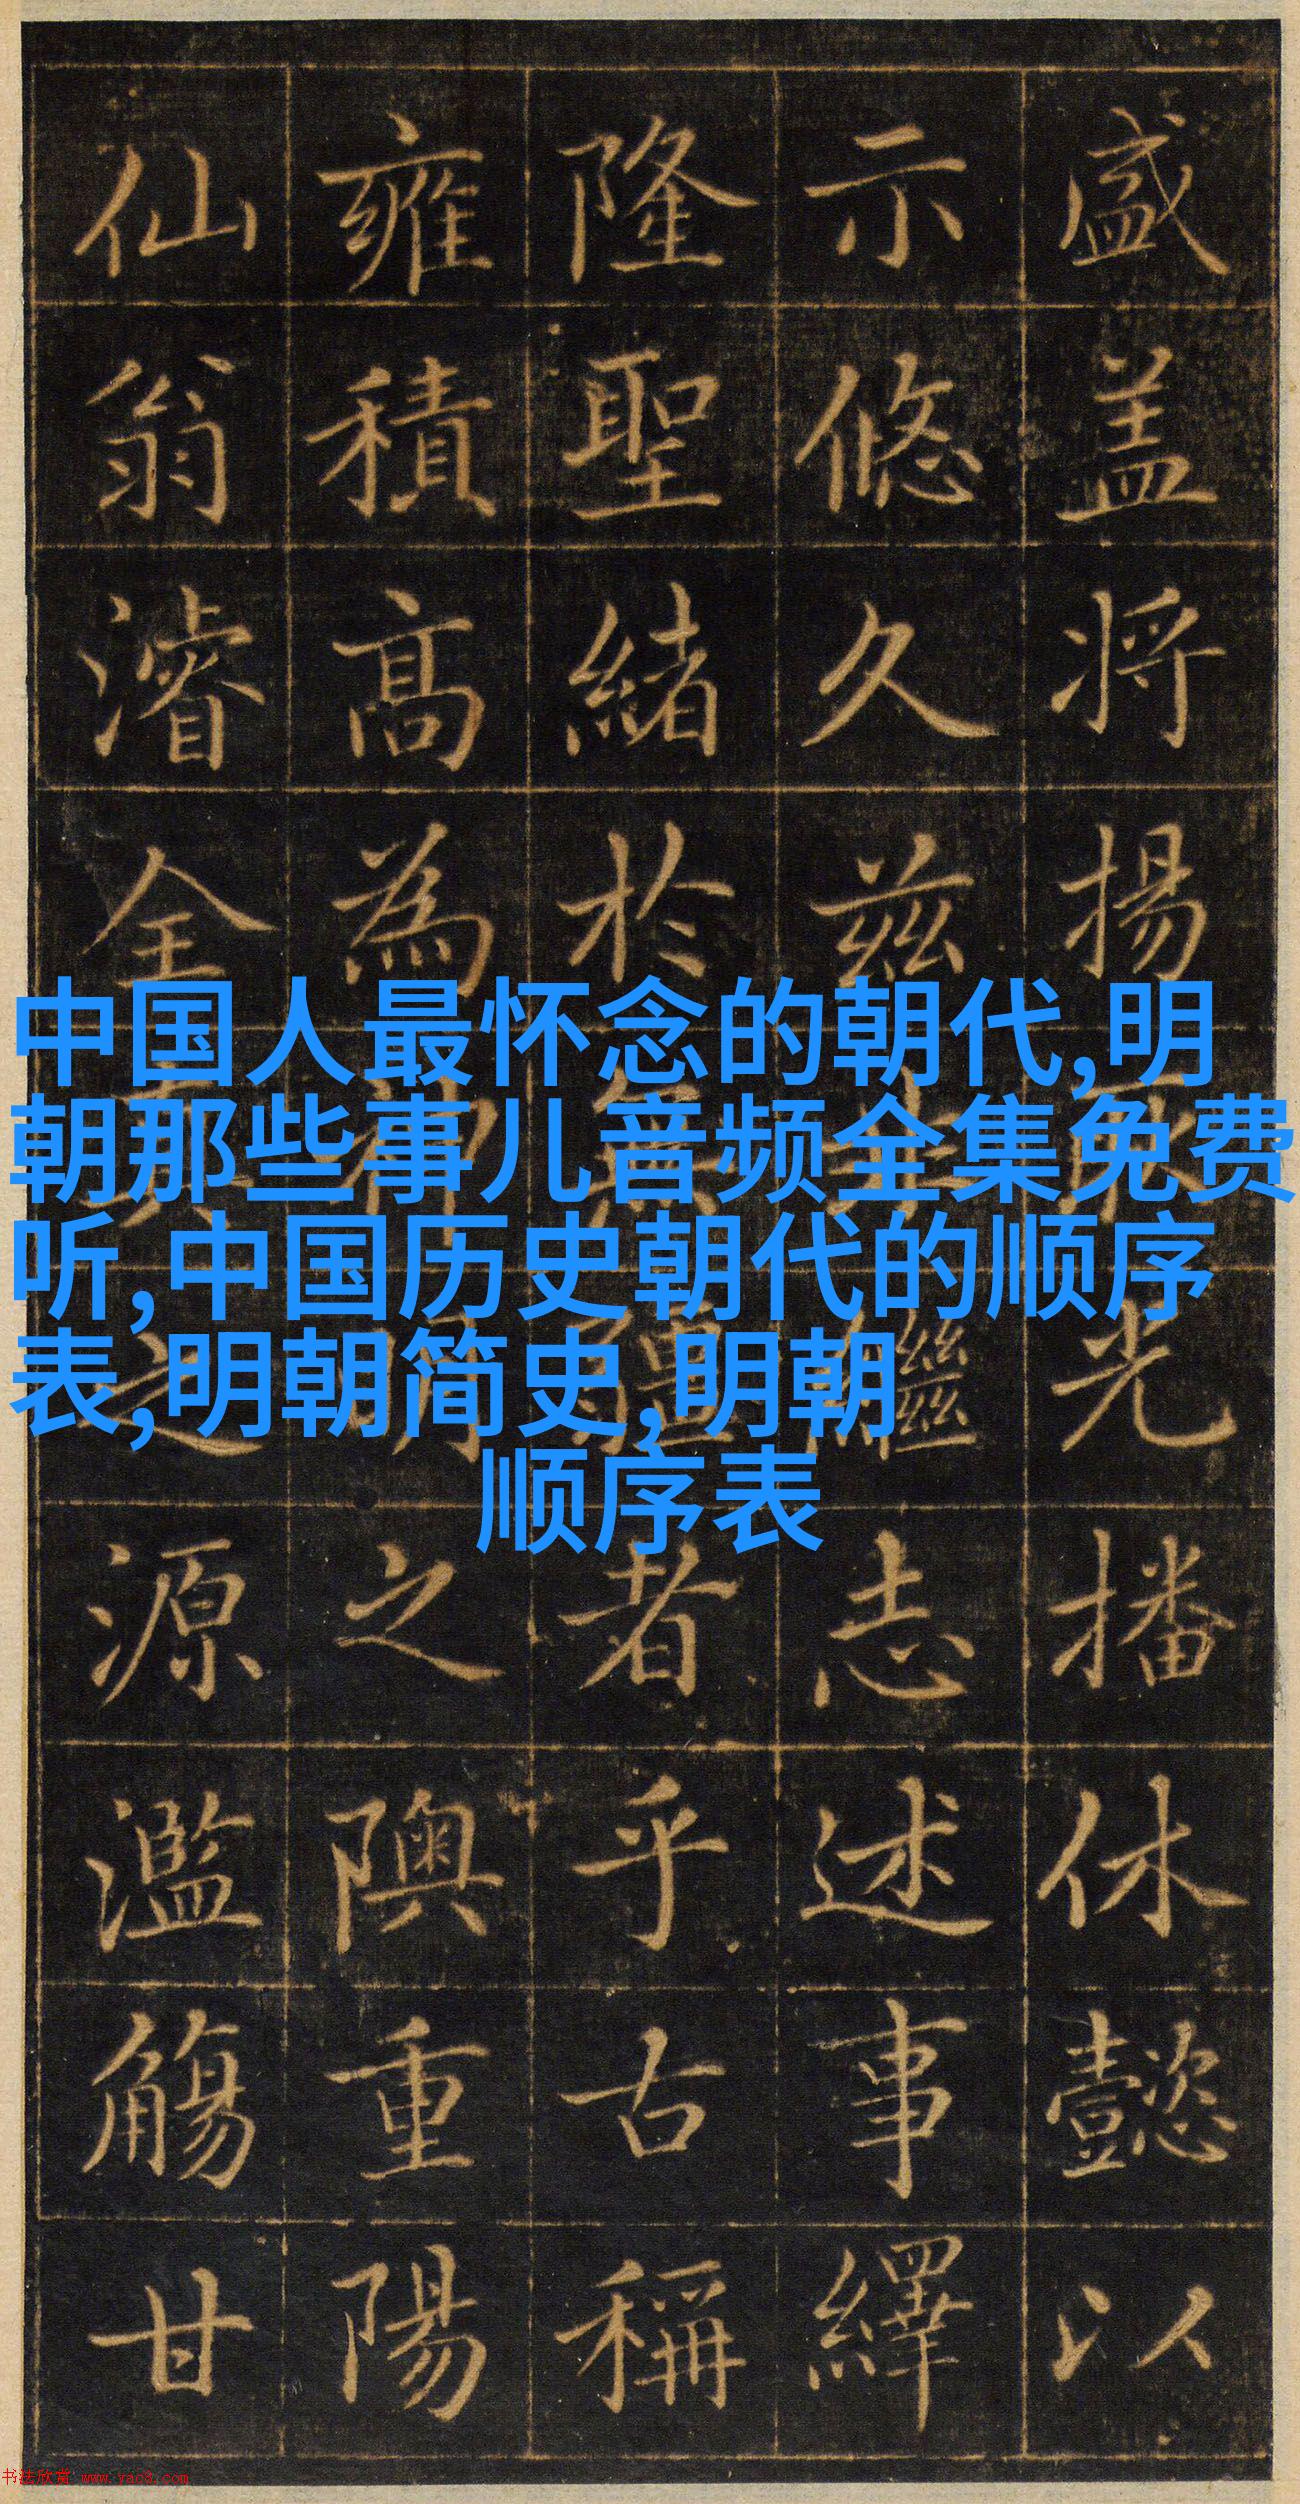 盛盖将揚光播休懿以
示悠久兹繼志述事繹
隆聖緒於無疆者乎古稱
雍積高為神明之隩重陽
仙翁濬全真之源濫觴甘
中国人最怀念的朝代,明
朝那些事儿音频全集免费
听,中国历史朝代的顺序
表,明朝简史,明朝
顺序表
书法欣赏 www.yac8.com